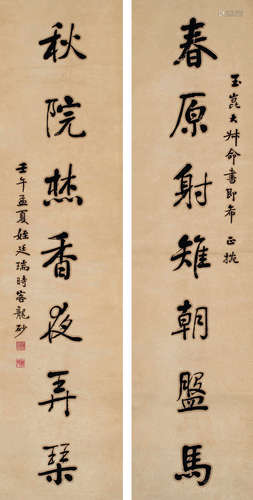 玉崑大舛命書即希 正挽
春原射雉朝盤馬
秋院焚香夜弄琴
壬午孟夏姪廷瑞時客龍砂